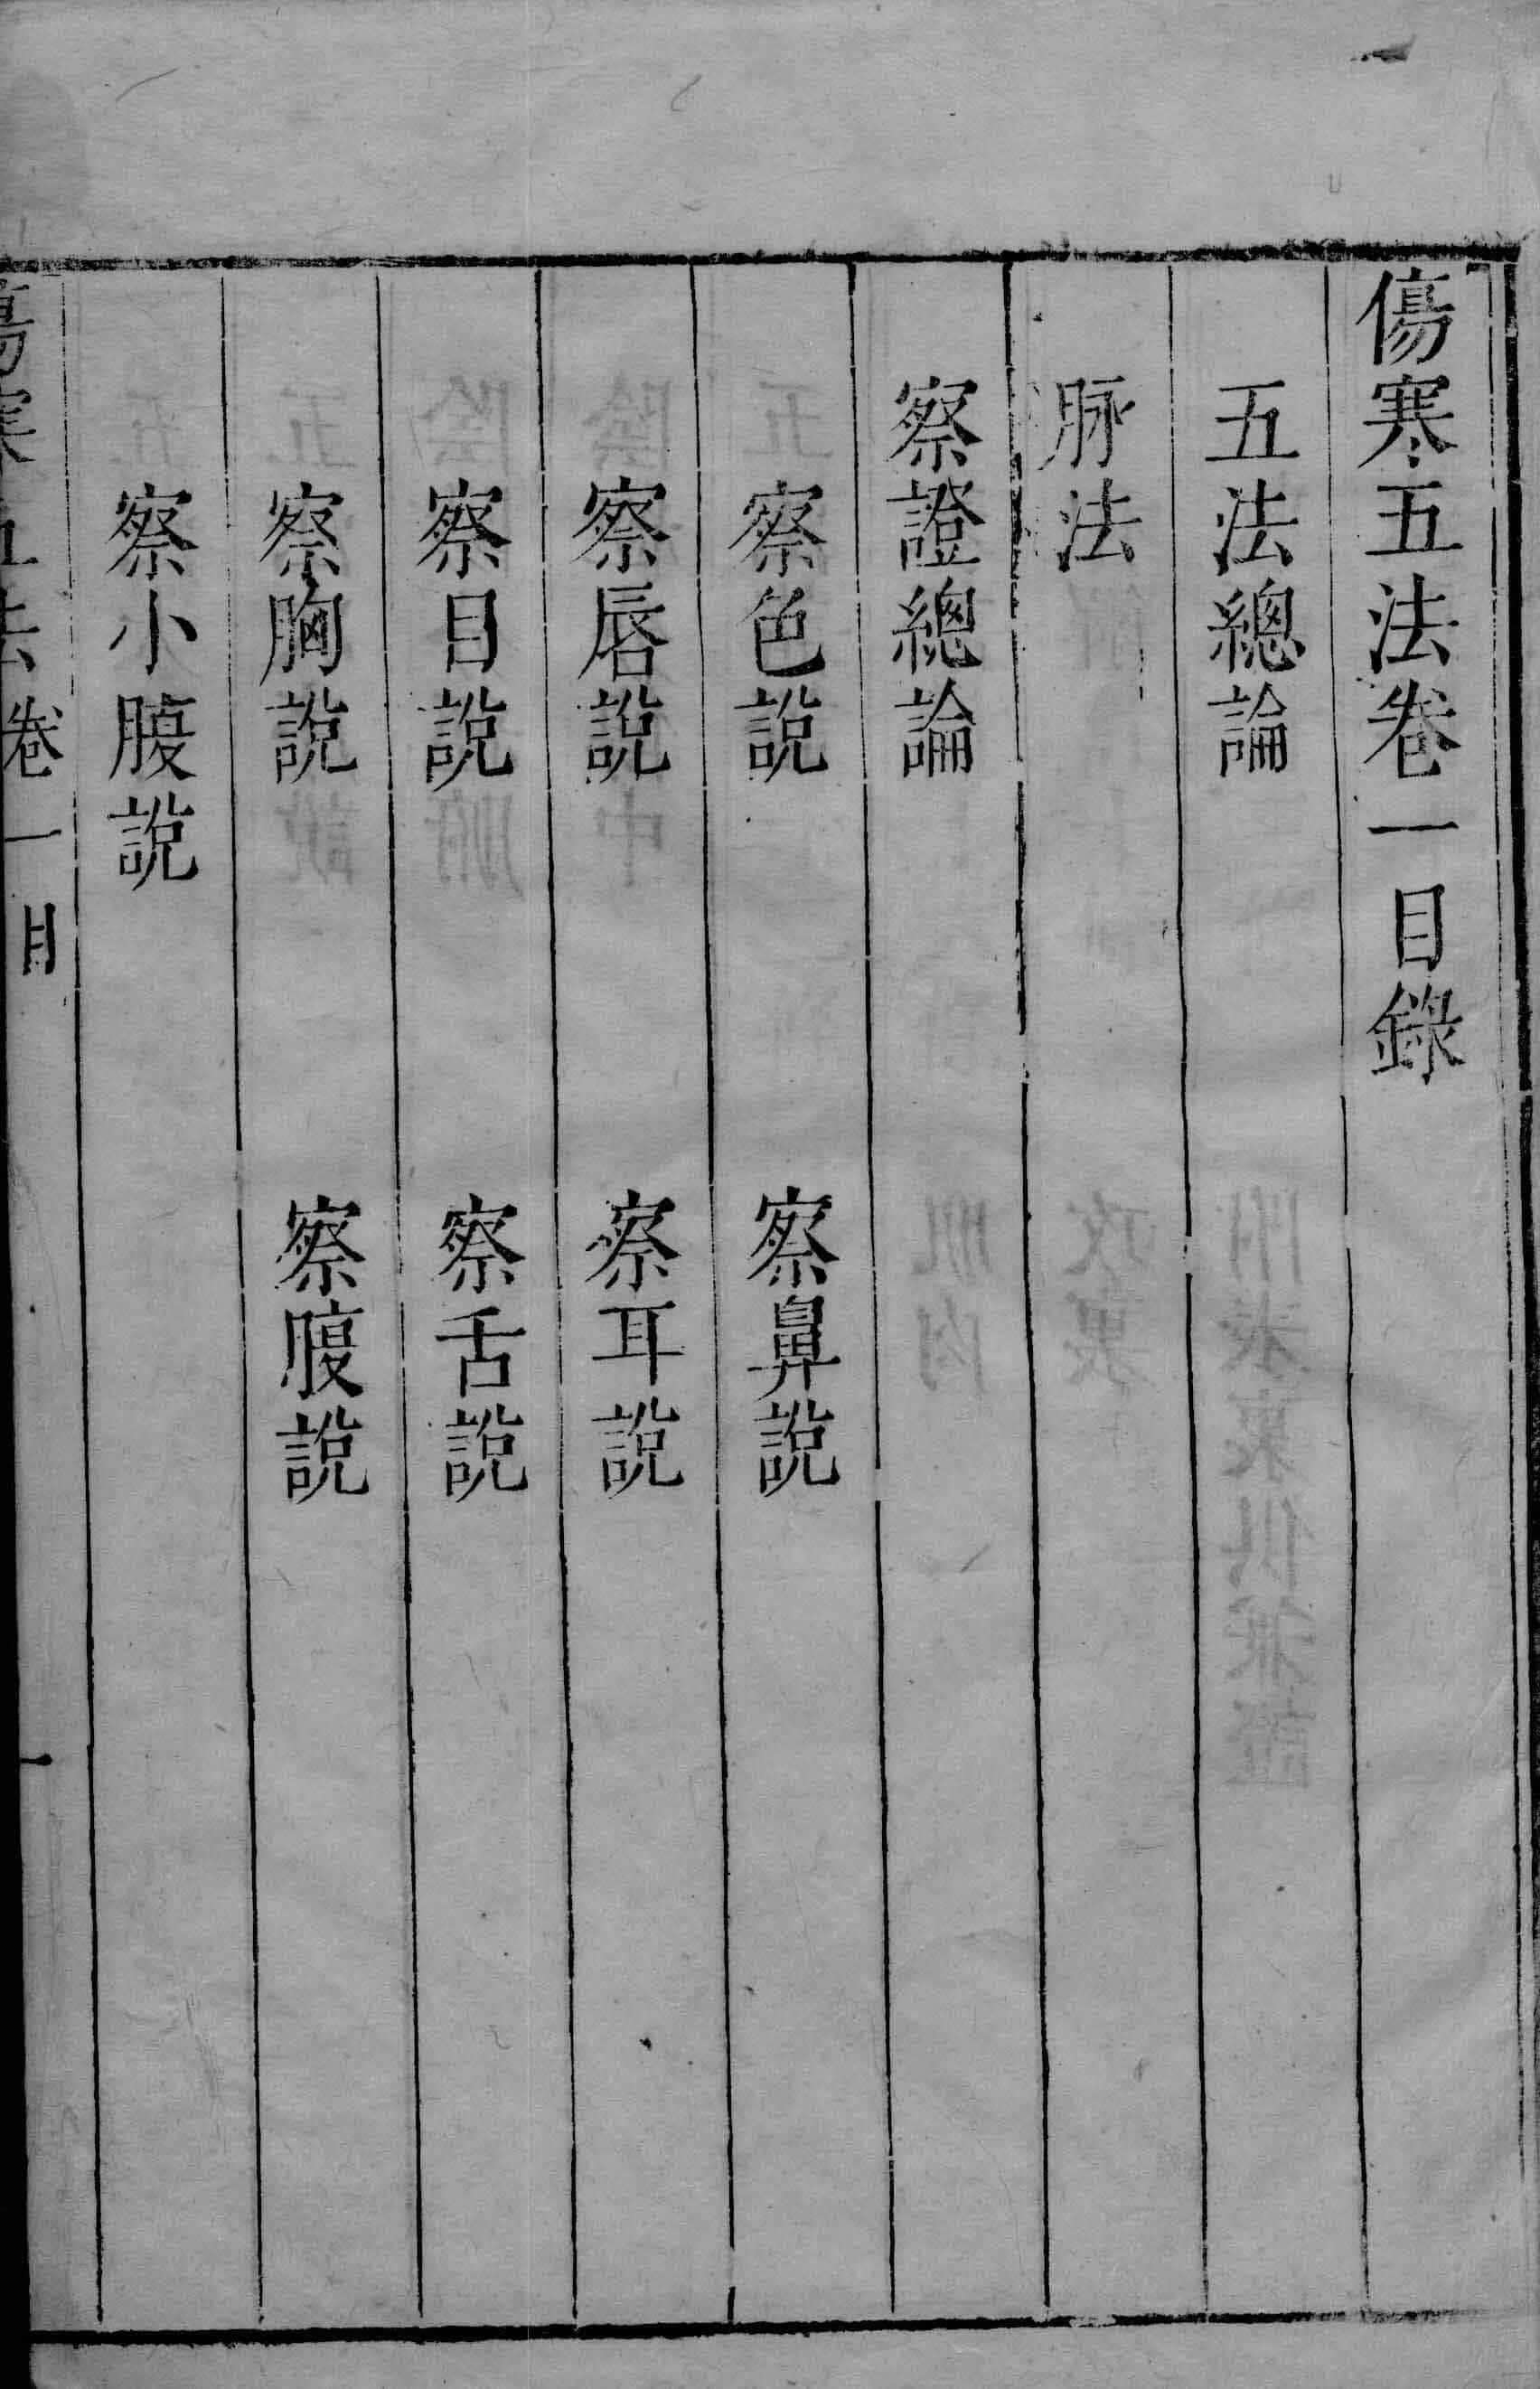 傷寒五法卷一目錄
五法總論
脉法
察證總論
察色說 察鼻說
察唇說 察耳說
察目說 察舌說
察胸說 察腹說
察小腹說
傷寒五法卷一目 一